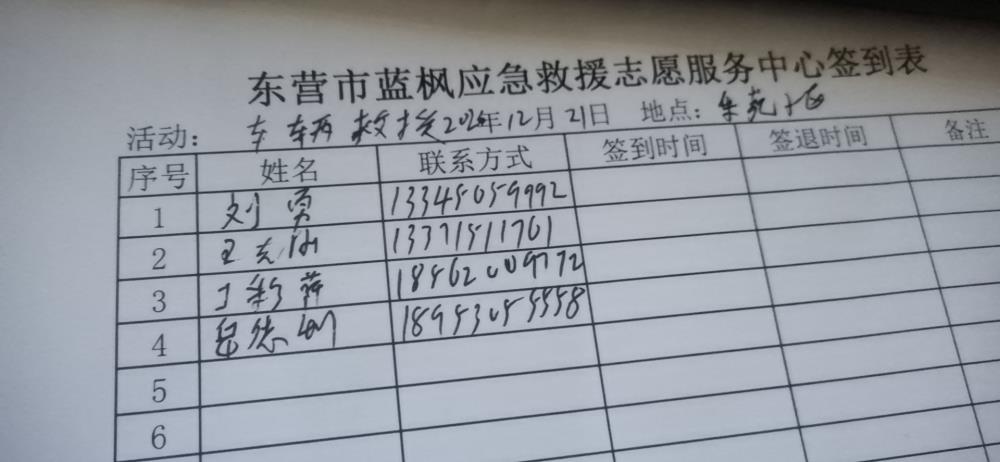 东营市蓝枫应急救援志愿服务中心签到表
活动: 车辆救援 年12月21日 地点:
序号 姓名 联系方式 签到时间 签退时间 备注
1 刘勇 13345059992
2 王 13371511761
3 丁彩萍 18562009772
4 岳德刚 18953055558
5
6